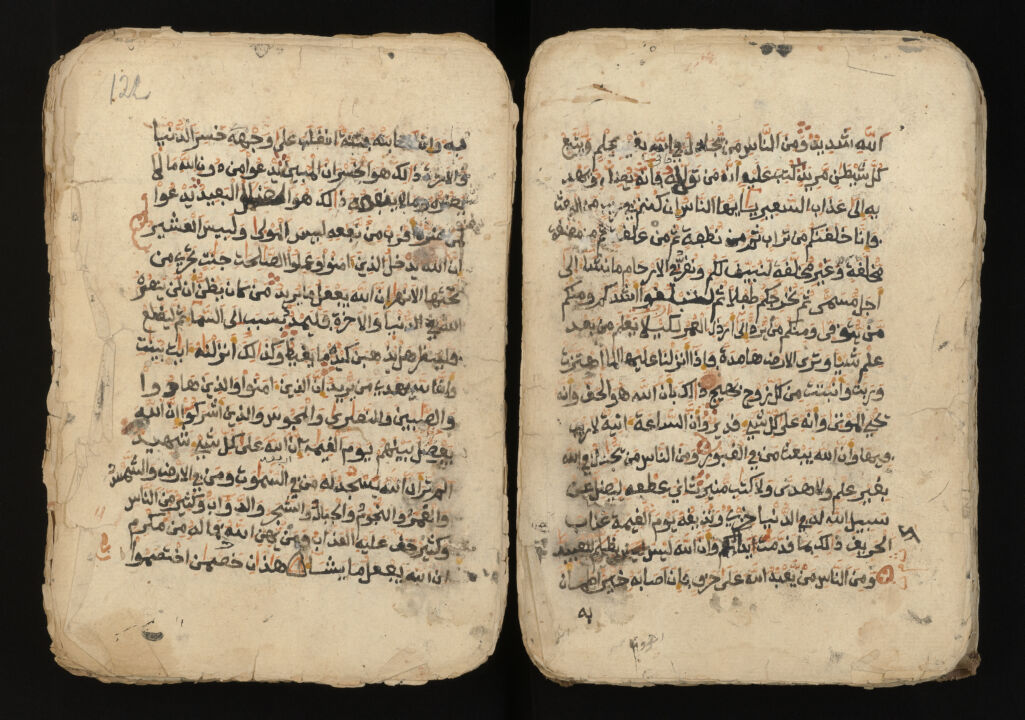 الله شديد ومن الناس من يجادل في الله بغير علم ويتبع
كل شيطن مريد كتب عليه أنه من تولاه فأنه يضله ويهديه
به إلى عذاب السعير يأيها الناس إن كنتم في ريب من البعث
فإنا خلقنكم من تراب ثم من نطفة ثم من علقة ثم من مضغة
مخلقة وغير مخلقة لنبين لكم ونقر في الأرحام ما نشاء إلى
أجل مسمى ثم نخرجكم طفلا ثم لتبلغوا أشدكم ومنكم
من يتوفى ومنكم من يرد إلى أرذل العمر لكيلا يعلم من بعد
علم شيئا وترى الأرض هامدة فإذا أنزلنا عليها الماء اهتزت
وربت وأنبتت من كل زوج بهيج ذلك بأن الله هو الحق وأنه
يحي الموتى وأنه على كل شيء قدير وأن الساعة آتية لا ريب
فيها وأن الله يبعث من في القبور ومن الناس من يجادل في الله
بغير علم ولا هدى ولا كتب منير ثاني عطفه ليضل عن
سبيل الله له في الدنيا خزي ونذيقه يوم القيمة عذاب
الحريق ذلك بما قدمت يداك وأن الله ليس بظلم للعبيد
ومن الناس من يعبد الله على حرف فإن أصابه خير اطمأن
به
122
به وإن أصابته فتنة انقلب على وجهه خسر الدنيا
والآخرة ذلك هو الخسران المبين يدعوا من دون الله ما لا
يضره وما لا ينفعه ذلك هو الضلل البعيد يدعوا
لمن ضره أقرب من نفعه لبيس المولى ولبيس العشير
إن الله يدخل الذين آمنوا وعملوا الصلحت جنت تجري من
تحتها الأنهر إن الله يفعل ما يريد من كان يظن أن لن ينصره
الله في الدنيا والآخرة فليمدد بسبب إلى السماء ثم ليقطع
فلينظر هل يذهبن كيده ما يغيظ وكذلك أنزلنه آيت بينت
وأن الله يهدي من يريد إن الذين آمنوا والذين هادوا
والصبين والنصرى والمجوس والذين أشركوا إن الله
يفصل بينهم يوم القيمة إن الله على كل شيء شهيد
ألم تر أن الله يسجد له من في السموت ومن في الأرض والشمس
والقمر والنجوم والجبال والشجر والدواب وكثير من الناس
وكثير حق عليه العذاب ومن يهن الله فما له من مكرم
إن الله يفعل ما يشاء هذان خصمن اختصموا